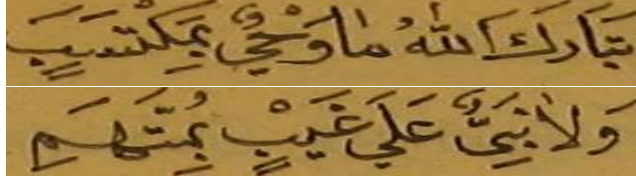 تَبَارَكَ اللهُ مَا وَحْيٌ بِمُكْتَسَبٍ
وَلَا نَبِيٌّ عَلَى غَيْبٍ بِمُتَّهَمِ